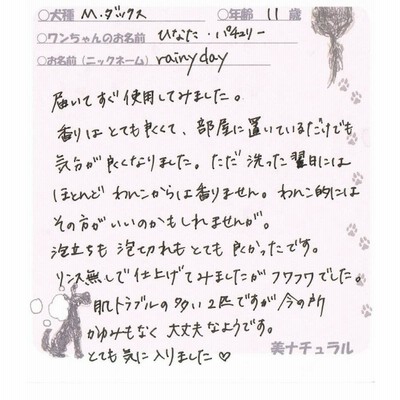 ○犬種 M.ダックス ○年齢 11 歳
○ワンちゃんのお名前 ひなた・パチュリー
○お名前(ニックネーム) rainyday
届いてすぐ使用してみました。
香りはとても良くて、部屋に置いているだけでも
気分が良くなりました。ただ洗った翌日には
ほとんどわんこからは香りません。わんこ的には
その方がいいのかもしれませんが。
泡立ちも泡切れもとても良かったです。
リンス無しで仕上げてみましたがフワフワでした。
肌トラブルの多い2匹ですが今の所
かゆみもなく大丈夫なようです。
とても気に入りました♡
美ナチュラル